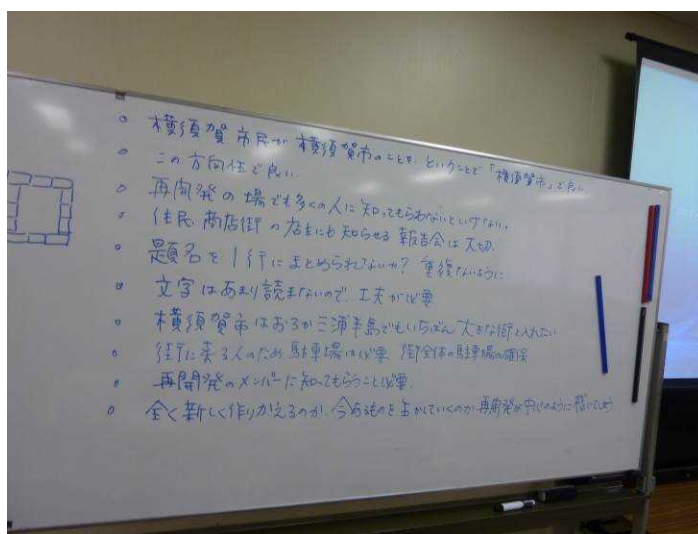 横須賀市民が横須賀市のことを、ということで「横須賀市」で良い
この方向性で良い
再開発の場でも多くの人に知ってもらわないといけない。
住民、商店街の店主にも知らせる報告会は大切
題名を1行にまとめられないか? 重複ないように
文字はあまり読まないので、工夫が必要
横須賀市はおろか三浦半島でもいちばん大きな街と入れたい
街に来る人のため駐車場は必要 街全体の駐車場の確保
再開発のメンバーに知ってもらうこと必要.
全く新しく作りかえるのか、今あるものを生かしていくのか 再開発が中心のように感じてしまう